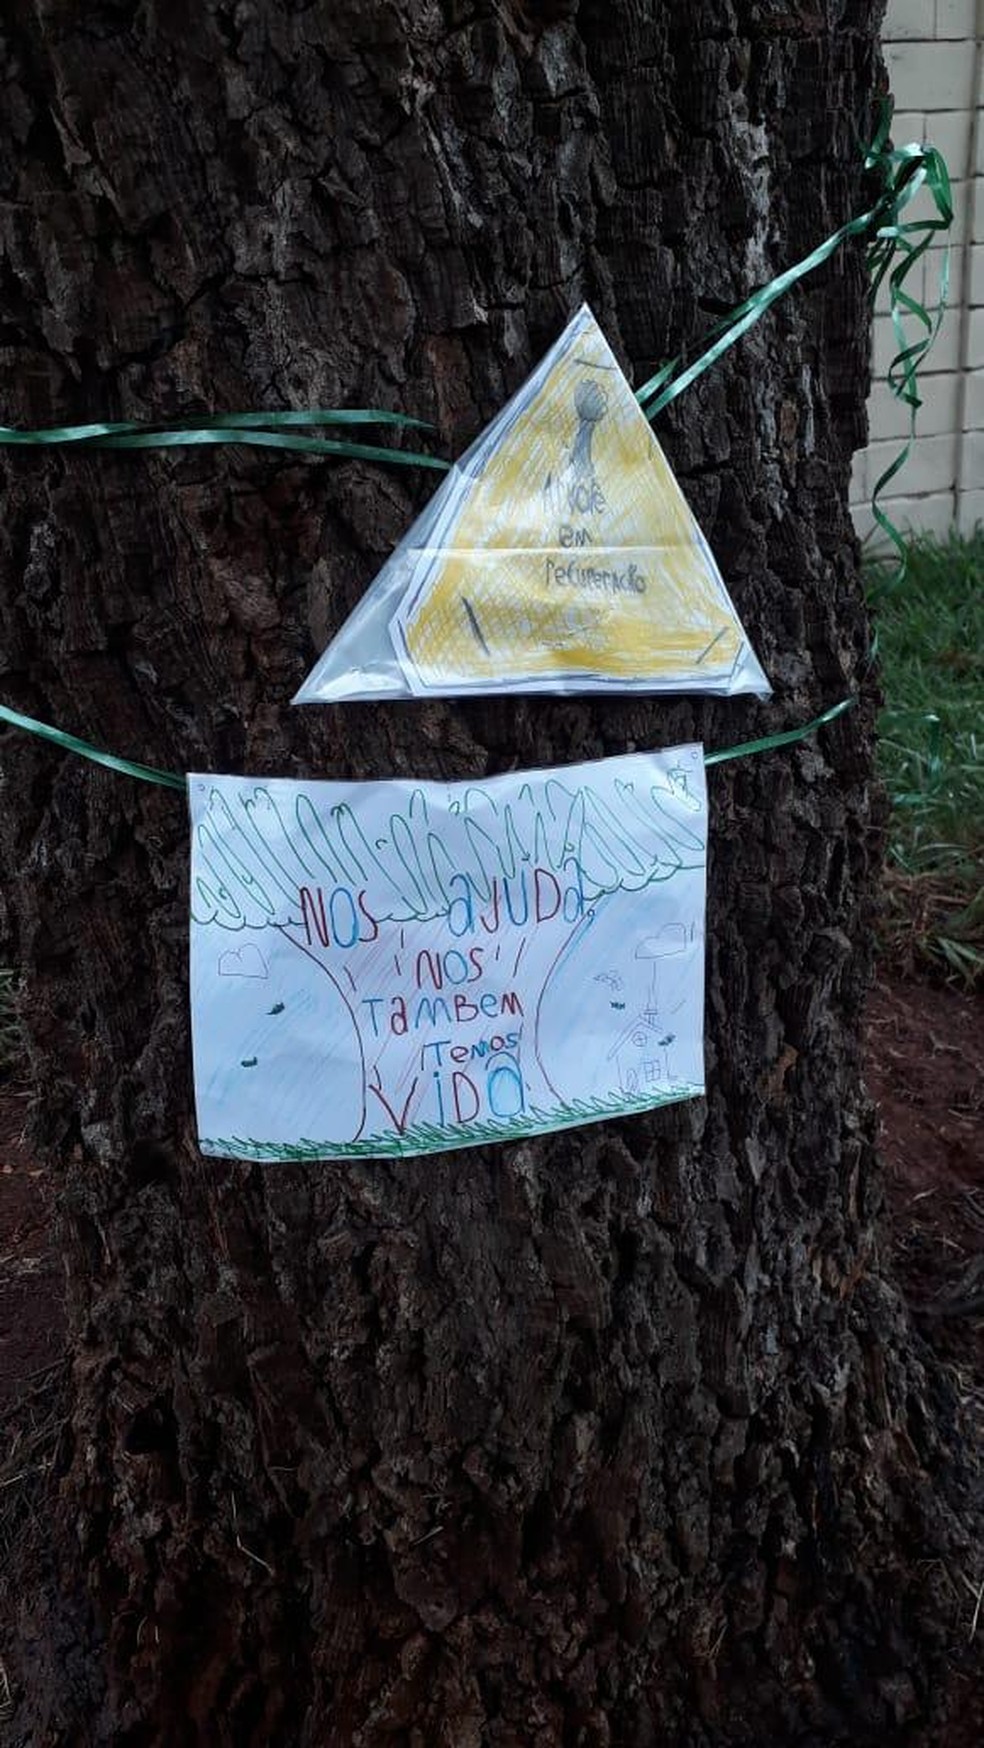 Arvore
em
recuperação
NOS aJUDa,
NOS
TamBem
Temos
ViDa